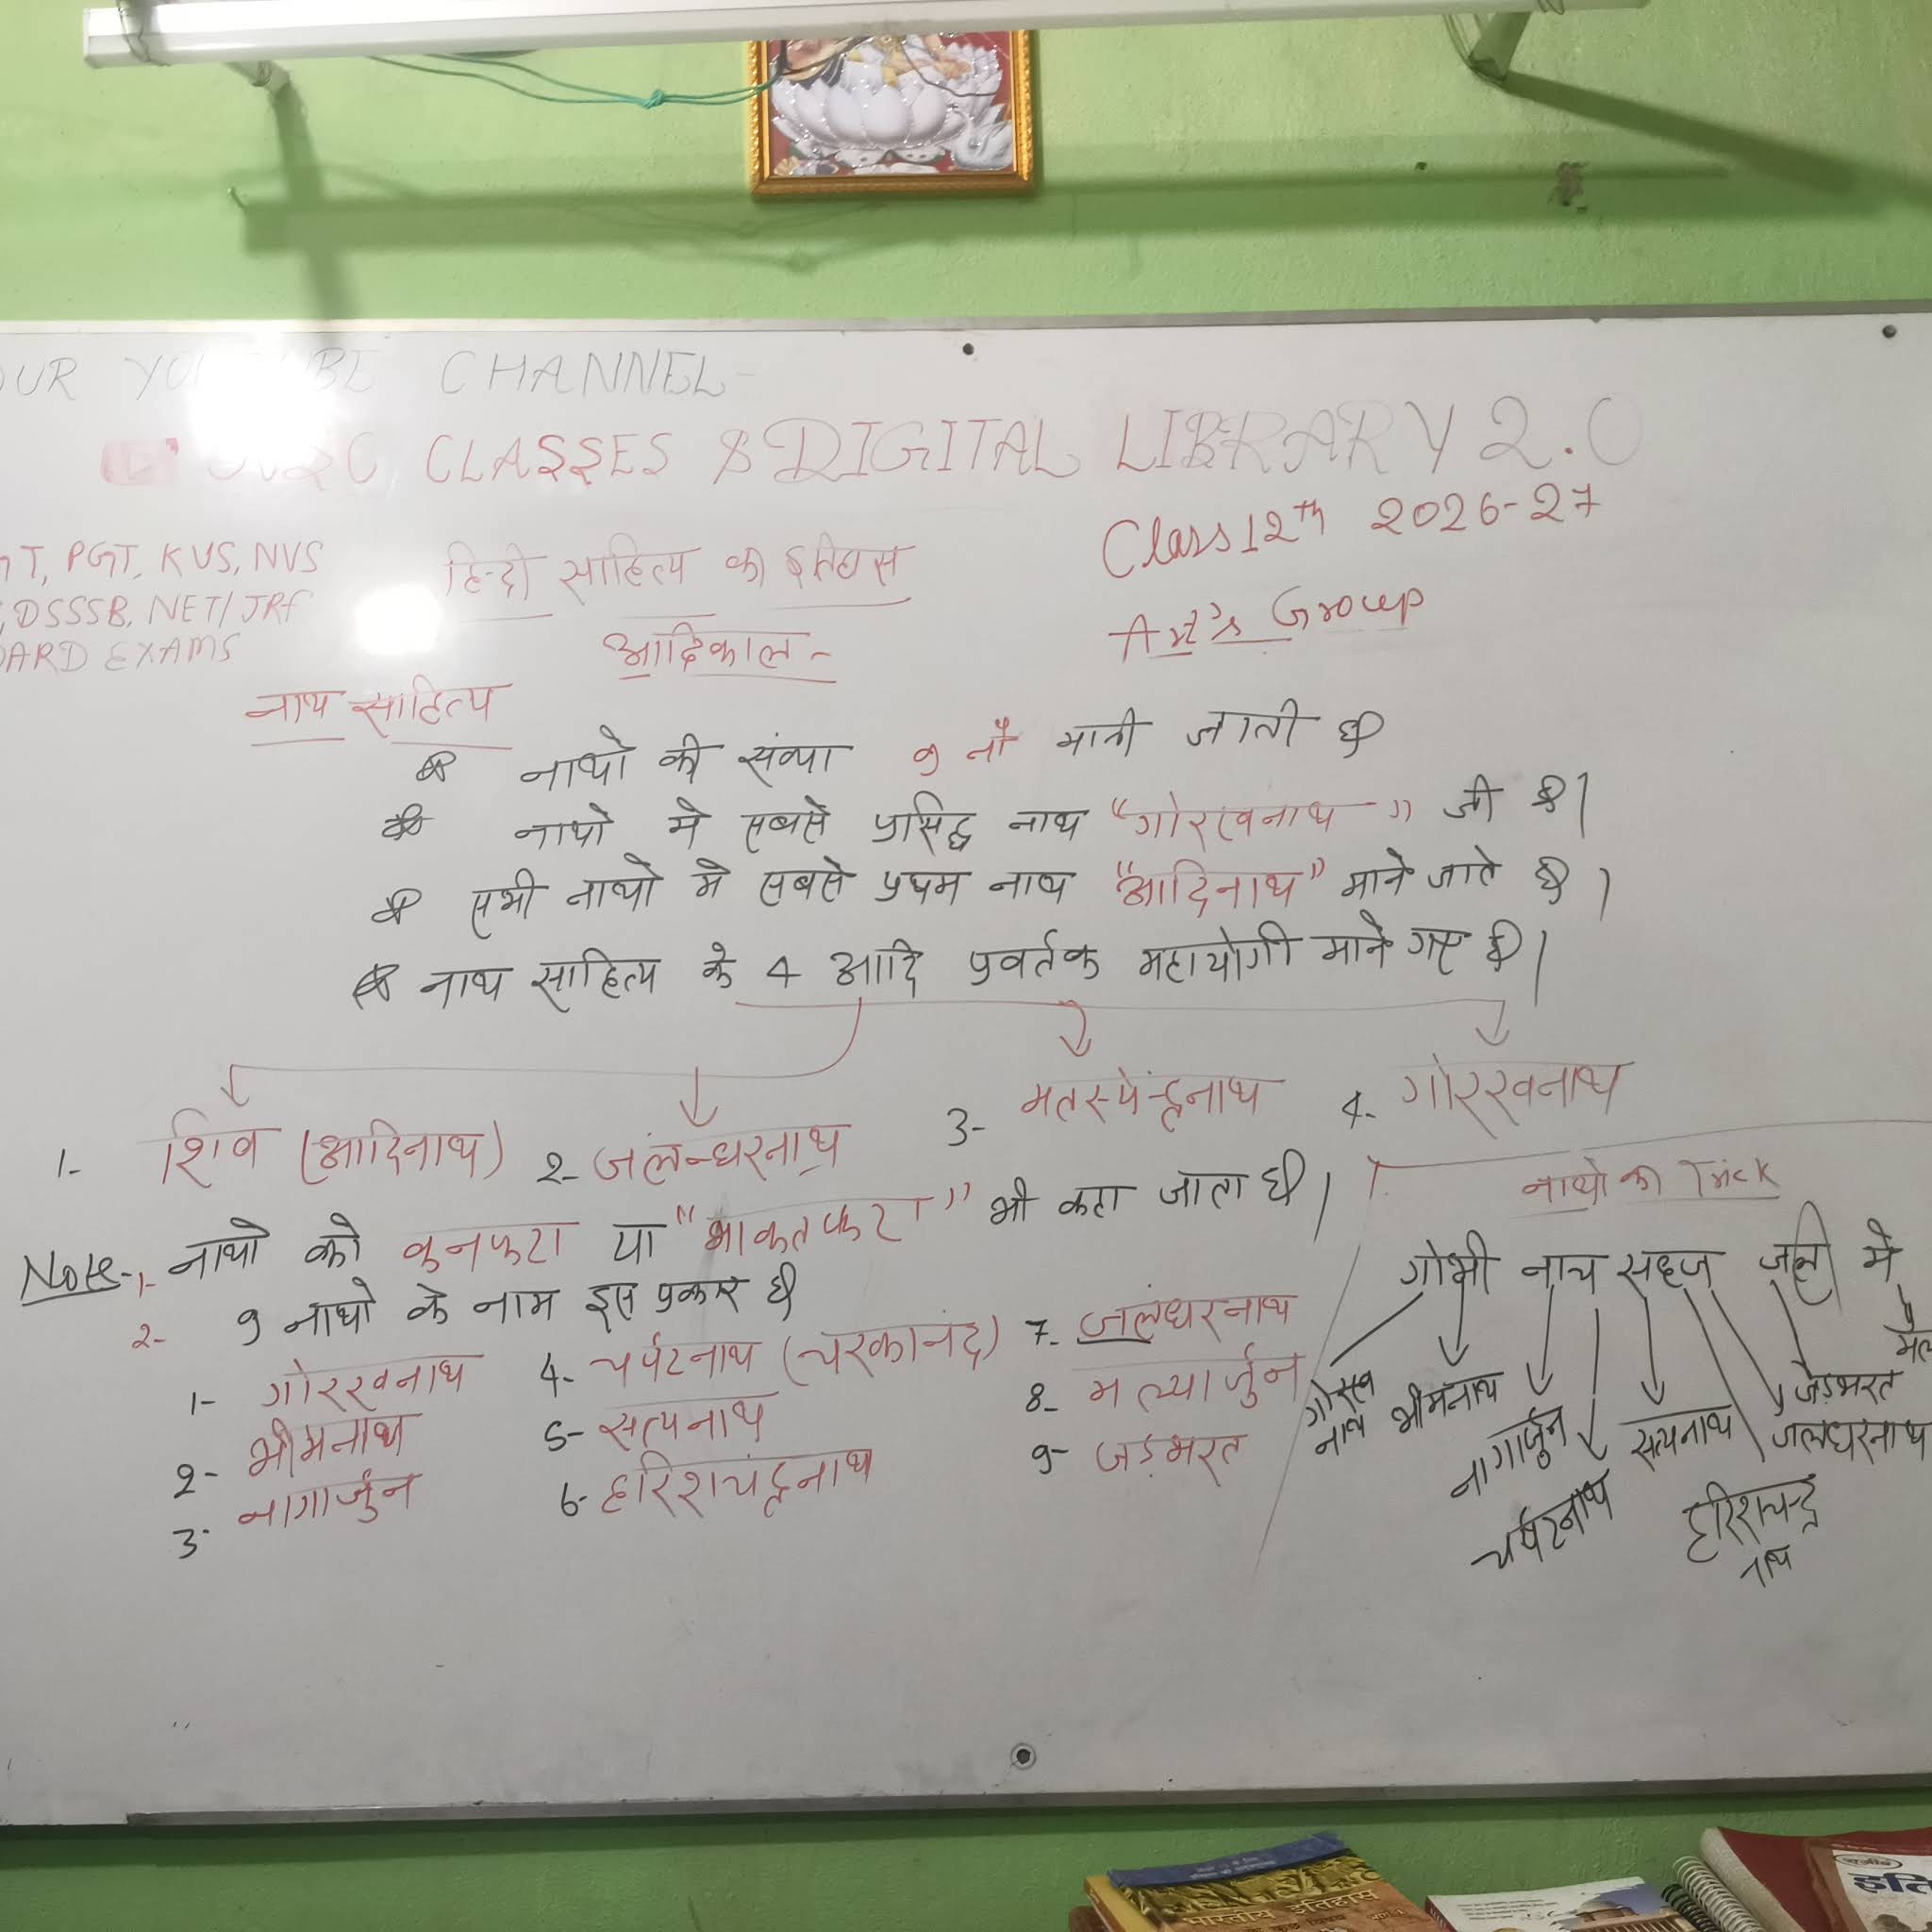 OUR YOUTUBE CHANNEL-
CLASSES & DIGITAL LIBRARY 2.0
Class 12th 2026-27
Art's Group
GT, PGT, KVS, NVS
, DSSSB, NET/JRF
OARD EXAMS
हिन्दी साहित्य का इतिहास
आदिकाल-
नाथ साहित्य
नाथो की संख्या 9 नौ मानी जाती है
नाथो मे सबसे प्रसिद्ध नाथ "गोरखनाथ" जी है।
सभी नाथो मे सबसे प्रथम नाथ "आदिनाथ" माने जाते है।
नाथ साहित्य के 4 आदि प्रवर्तक महायोगी माने गए है।
1- शिव (आदिनाथ) 2- जलंन्धरनाथ 3- मतस्येन्द्रनाथ 4- गोरखनाथ
Note- 1- नाथो को कनफटा या " " भी कहा जाता है।
2- 9 नाथो के नाम इस प्रकार है
1- गोरखनाथ
2- भीमनाथ
3- नागार्जुन
4- चर्पटनाथ (चरकानंद)
5- सत्यनाथ
6- हरिशचंद्रनाथ
7- जलंधरनाथ
8- मल्यार्जुन
9- जड़भरत
नाथो का Trick
गोभी नाच सहज जही मे
गोरख नाथ
भीमनाथ
नागार्जुन
चर्पटनाथ
सत्यनाथ
हरिशचन्द्र नाथ
जड़भरत
जलंधरनाथ
भारतीय इतिहास